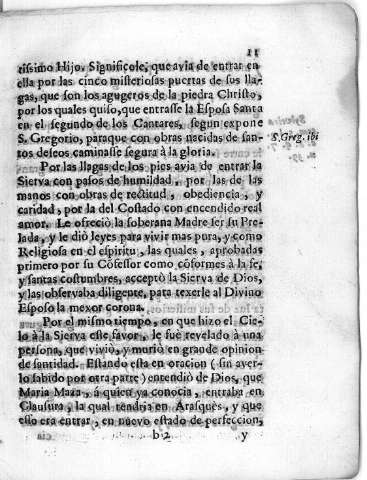 11
tissimo Hijo. Significole, que avia de entrar en
ella por las cinco misteriosas puertas de sus lla-
gas, que son los agugeros de la piedra Christo,
por los quales quiso, que entrasse la Esposa Santa
en el segundo de los Cantares, segun expone
S. Gregorio, paraque con obras nacidas de san-
S. Greg. ibi
tos deseos caminasse segura à la gloria.
Por las llagas de los pies avia de entrar la
Sierva con pasos de humildad, por las de las
manos con obras de rectitud, obediencia, y
caridad, por la del Costado con encendido real
amor. Le ofreciò la soberana Madre ser su Pre-
lada, y le diò leyes para vivir mas pura, y como
Religiosa en el espiritu, las quales, aprobadas
primero por su Cõfessor como cõformes à la fe,
y santas costumbres, acceptò la Sierva de Dios,
y las observaba diligente, para texerle al Divino
Esposo la mexor corona.
Por el mismo tiempo, en que hizo el Cie-
lo à la Sierva este favor, le fue revelado à una
persona, que viviò, y muriò en grande opinion
de santidad. Estando esta en oracion (sin aver-
lo sabido por otra parte) entendiò de Dios, que
Maria Maza, à quien ya conocia, entraba en
Clausura, la qual tendria en Arasquès, y que
esso era entrar, en nuevo estado de perfeccion,
b 2 y